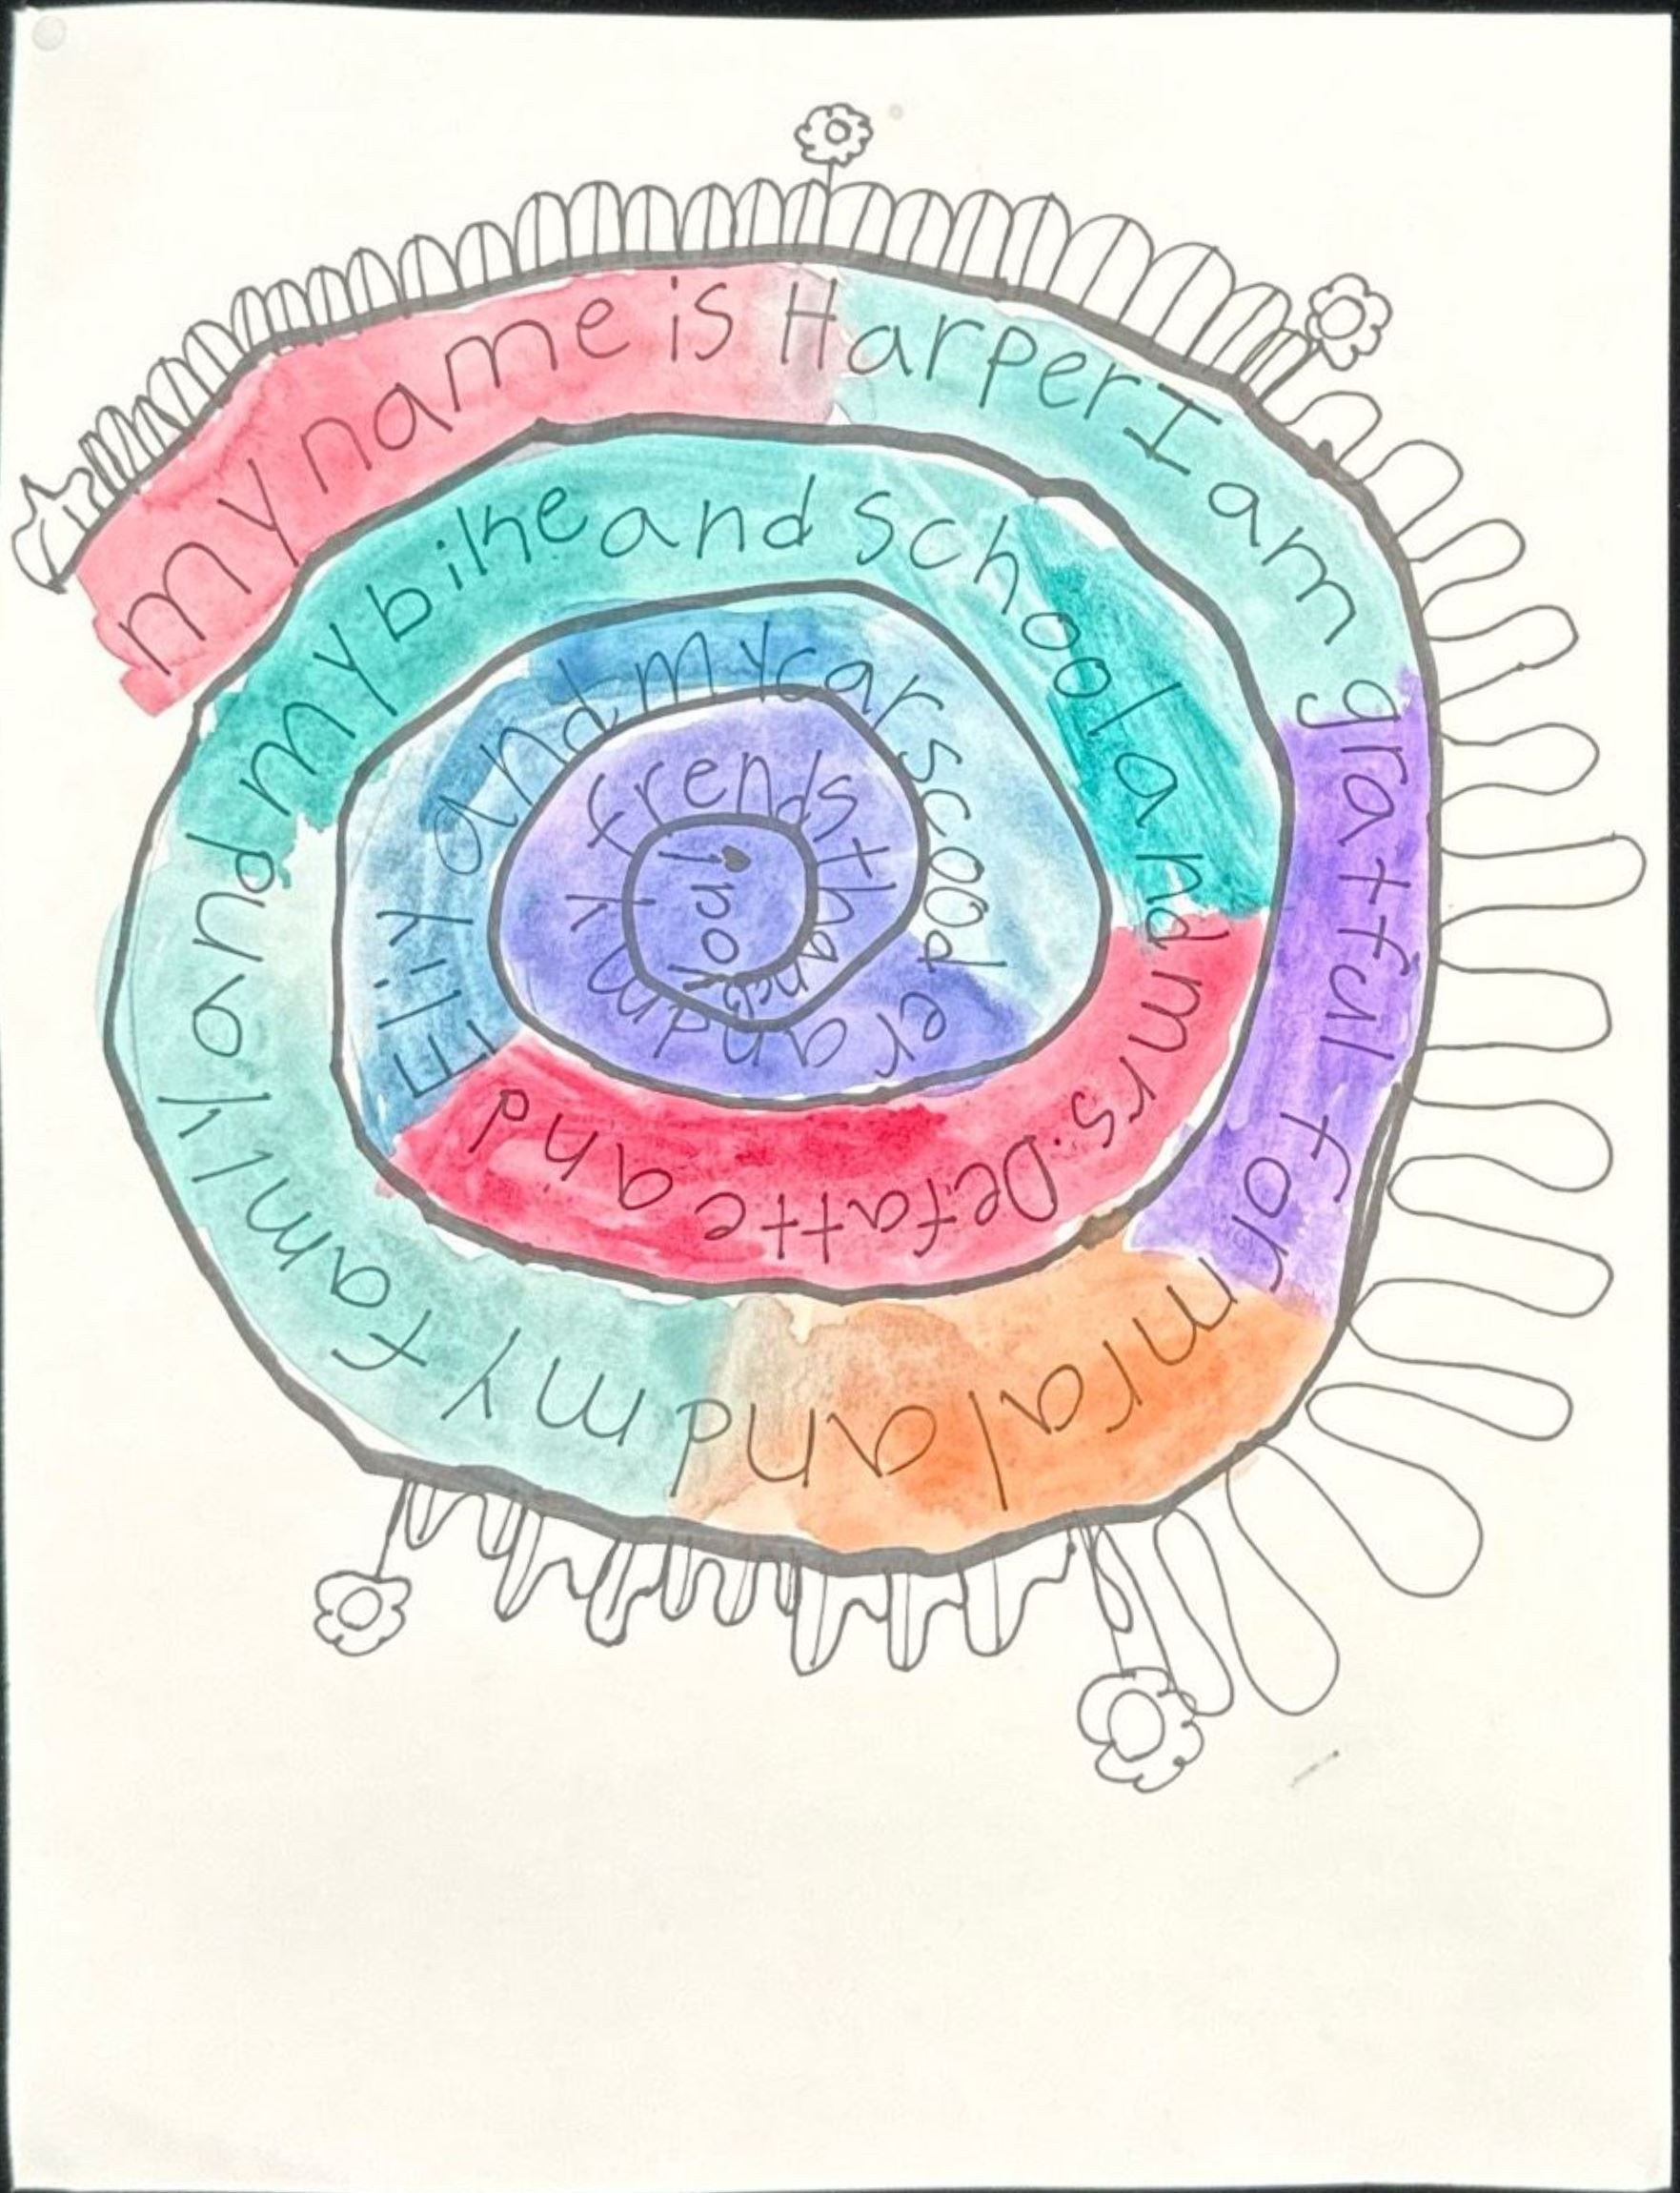 my name is Harper I am gratful for mral and my famly and my bike and school and mrs. Defatte and Eliy and my car scooder and my frends thanck you!